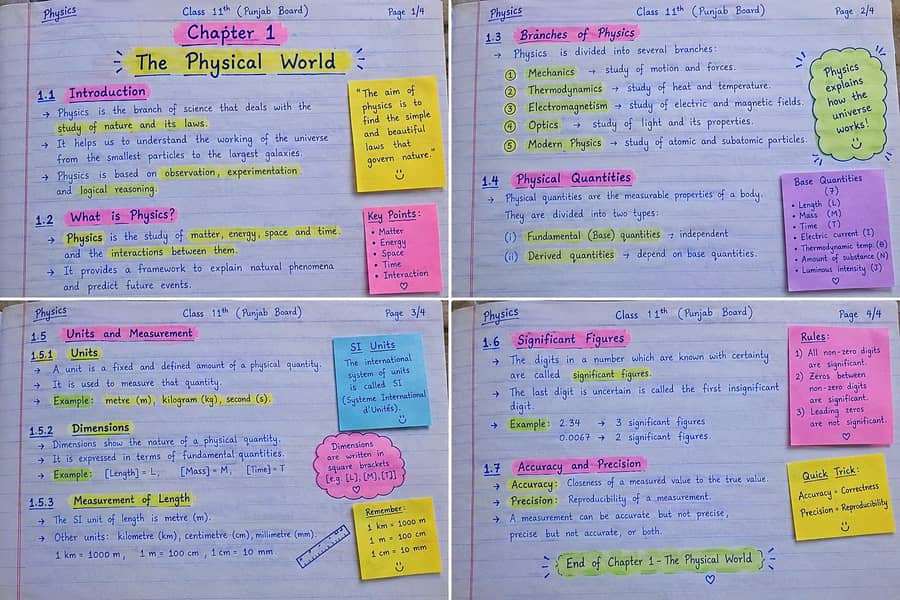 Physics
Class 11th (Punjab Board)
Page 1/4
Chapter 1
The Physical World
1.1 Introduction
→ Physics is the branch of science that deals with the
study of nature and its laws.
→ It helps us to understand the working of the universe
from the smallest particles to the largest galaxies.
→ Physics is based on observation, experimentation
and logical reasoning.
"The aim of
physics is to
find the simple
and beautiful
laws that
govern nature."
1.2 What is Physics?
→ Physics is the study of matter, energy, space and time.
and the interactions between them.
→ It provides a framework to explain natural phenomena
and predict future events.
Key Points:
• Matter
• Energy
• Space
• Time
• Interaction
Physics
Class 11th (Punjab Board)
Page 2/4
1.3 Branches of Physics
→ Physics is divided into several branches:
① Mechanics → study of motion and forces.
② Thermodynamics → study of heat and temperature.
③ Electromagnetism → study of electric and magnetic fields.
④ Optics → study of light and its properties.
⑤ Modern Physics → study of atomic and subatomic particles.
Physics
explains
how the
universe
works!
1.4 Physical Quantities
→ Physical quantities are the measurable properties of a body.
They are divided into two types:
(i) Fundamental (Base) quantities → independent
(ii) Derived quantities → depend on base quantities.
Base Quantities
(7)
• Length (L)
• Mass (M)
• Time (T)
• Electric current (I)
• Thermodynamic temp. (θ)
• Amount of substance (N)
• Luminous intensity (J)
Physics
Class 11th (Punjab Board)
Page 3/4
1.5 Units and Measurement
1.5.1 Units
→ A unit is a fixed and defined amount of a physical quantity.
→ It is used to measure that quantity.
→ Example: metre (m), kilogram (kg), second (s).
SI Units
The international
system of units
is called SI
(Systeme International
d'Unités).
1.5.2 Dimensions
→ Dimensions show the nature of a physical quantity.
→ It is expressed in terms of fundamental quantities.
→ Example: [Length] = L, [Mass] = M, [Time] = T
Dimensions
are written in
square brackets
[e.g. [L], [M], [T]]
1.5.3 Measurement of Length
→ The SI unit of length is metre (m).
→ Other units: kilometre (km), centimetre (cm), millimetre (mm).
1 km = 1000 m, 1 m = 100 cm, 1 cm = 10 mm
Remember:
1 km = 1000 m
1 m = 100 cm
1 cm = 10 mm
Physics
Class 11th (Punjab Board)
Page 4/4
1.6 Significant Figures
→ The digits in a number which are known with certainty
are called significant figures.
→ The last digit is uncertain is called the first insignificant
digit.
→ Example: 2.34 → 3 significant figures
0.0067 → 2 significant figures
Rules:
1) All non-zero digits
are significant.
2) Zeros between
non-zero digits
are significant.
3) Leading zeros
are not significant.
1.7 Accuracy and Precision
→ Accuracy: Closeness of a measured value to the true value.
→ Precision: Reproducibility of a measurement.
→ A measurement can be accurate but not precise,
precise but not accurate, or both.
Quick Trick:
Accuracy = Correctness
Precision = Reproducibility
End of Chapter 1 - The Physical World